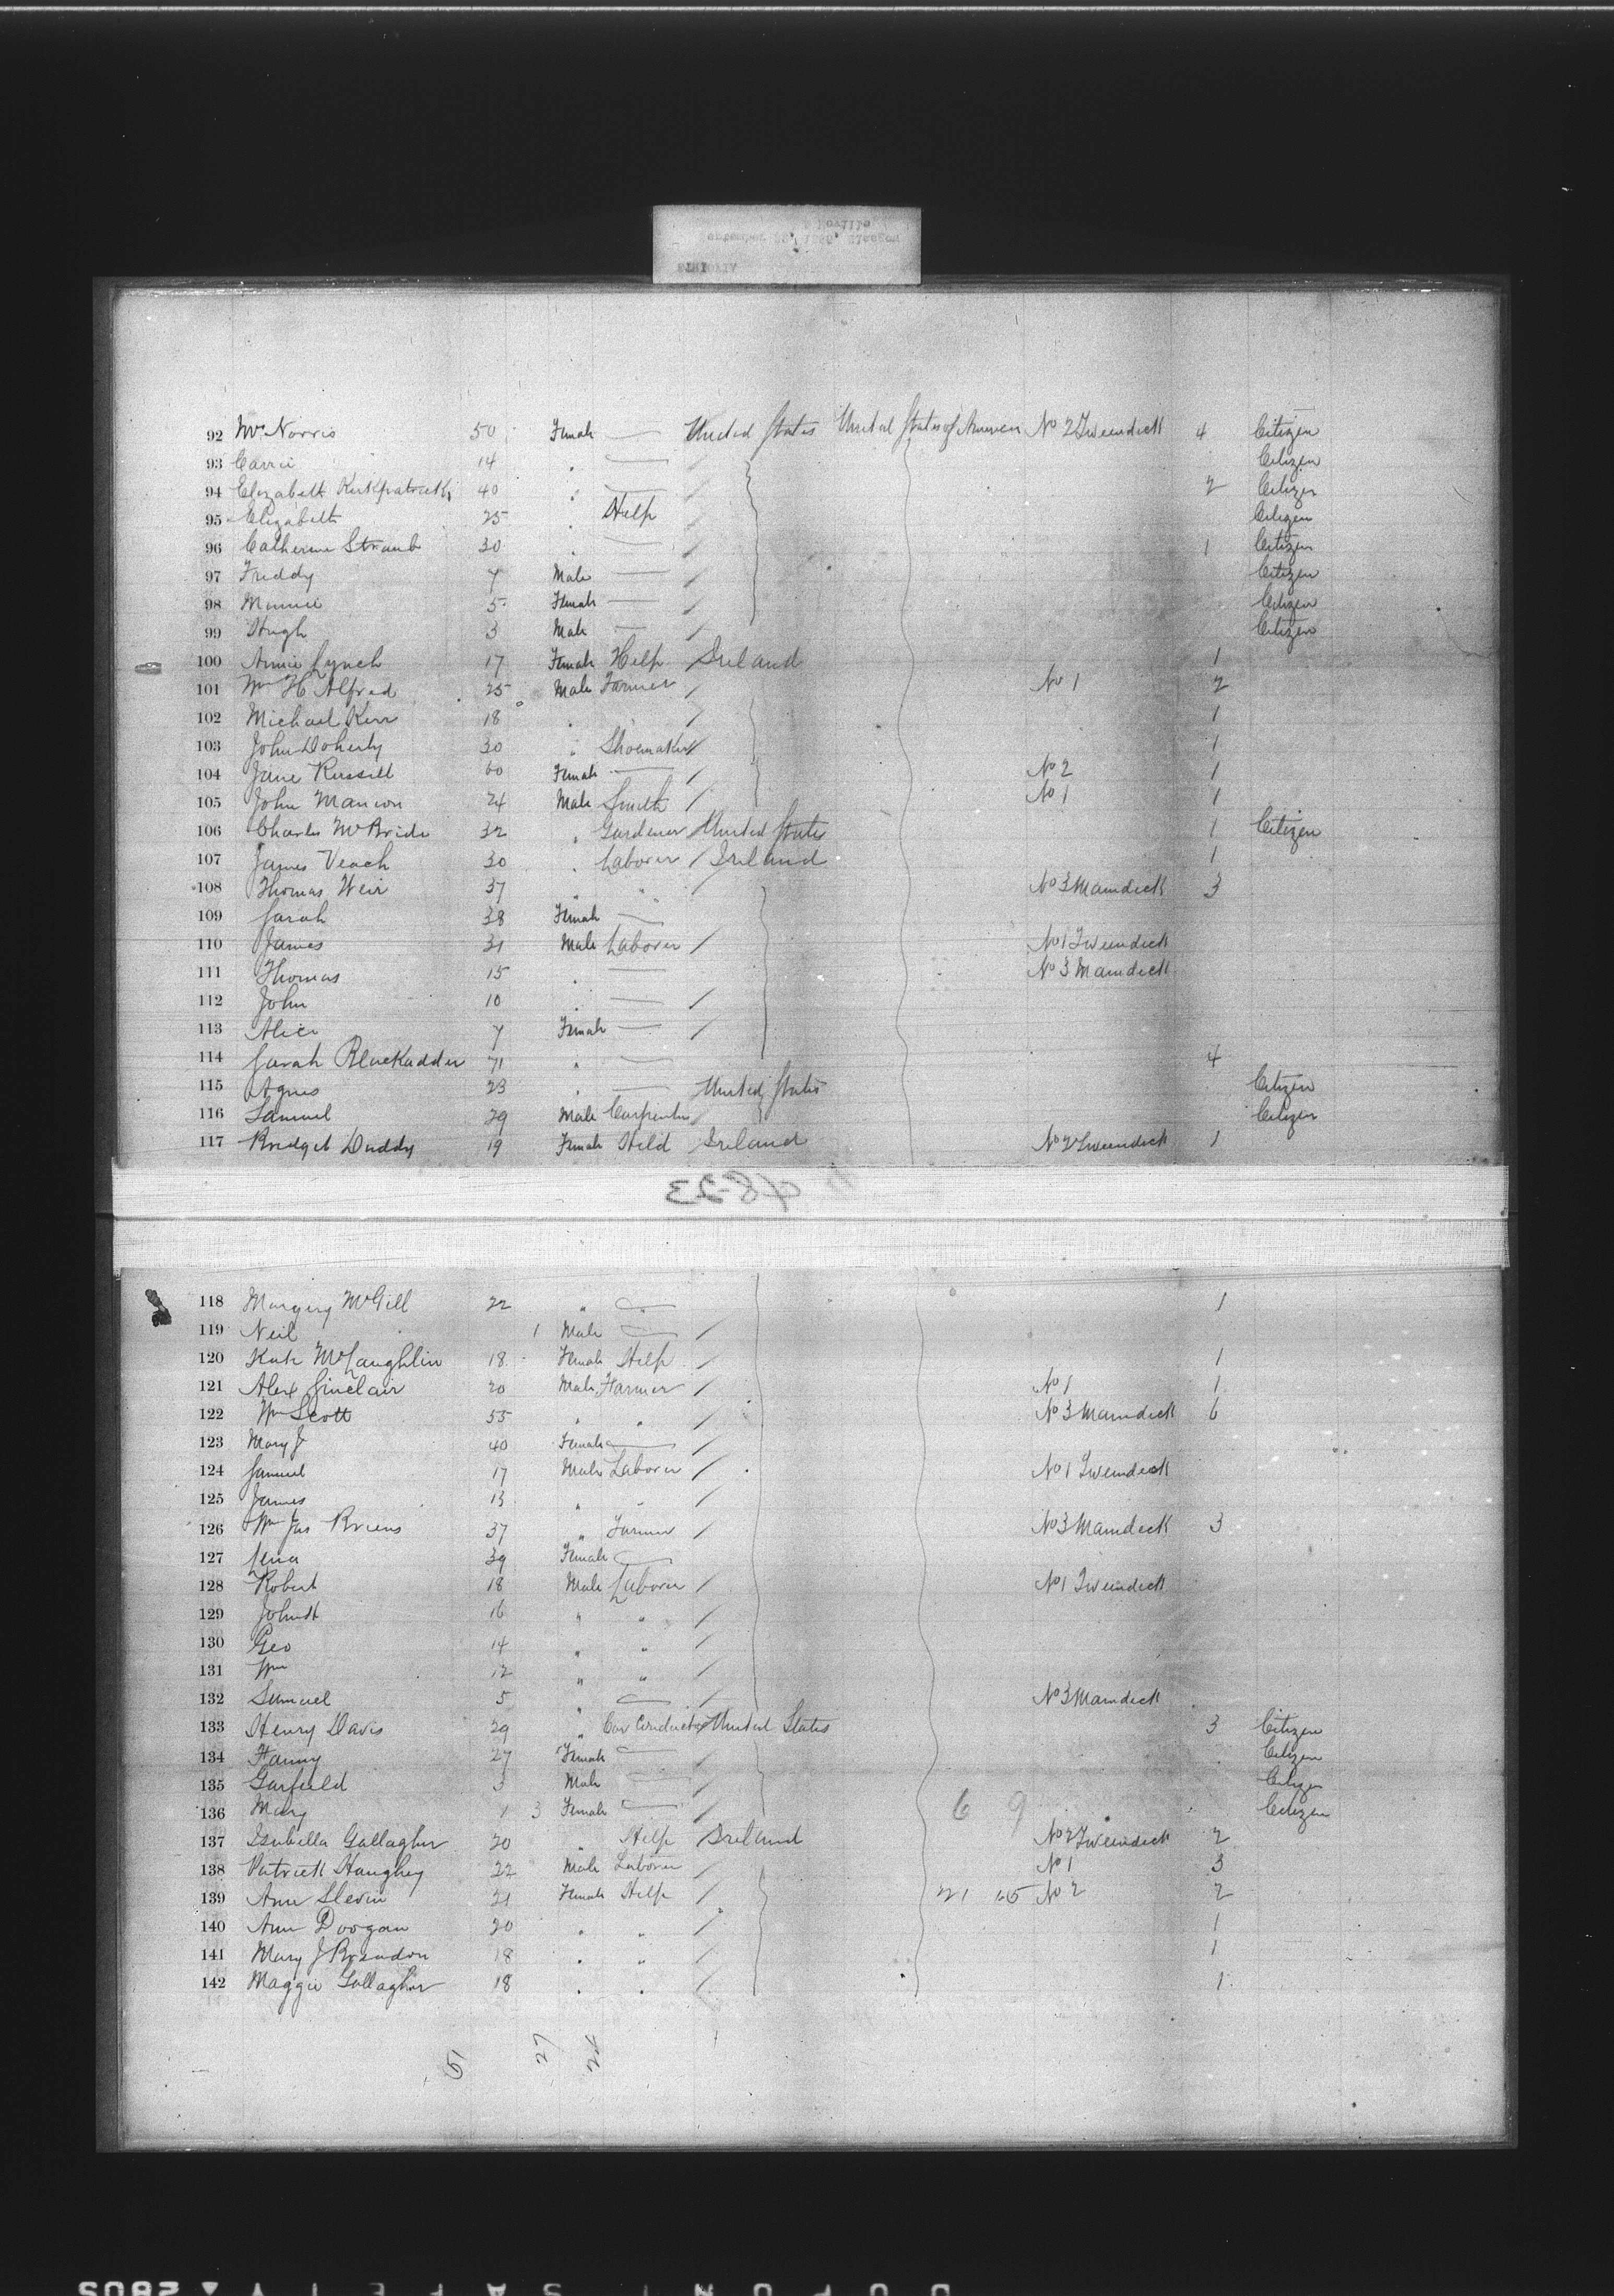 92 Mrs Norris 50 Female — United States United States of America No 2 Tweendeck 4 Citizen
93 Carrie 14 " — Citizen
94 Elizabeth Kirkpatrick 40 " — 2 Citizen
95 Elizabeth 25 " Help Citizen
96 Catherine Straub 30 " — 1 Citizen
97 Freddy 7 Male — Citizen
98 Mamie 5 Female — Citizen
99 Hugh 3 Male — Citizen
100 Annie Lynch 17 Female Help Ireland 1
101 Wm H Alfred 25 Male Farmer No 1 2
102 Michael Kerr 18 " 1
103 John Doherty 30 " Shoemaker 1
104 Jane Russell 60 Female — No 2 1
105 John Manion 24 Male Smith No 1 1
106 Charles McBride 32 " Gardener United States 1 Citizen
107 James Veach 30 " Laborer Ireland 1
108 Thomas Weir 37 " " No 3 Maindeck 3
109 Sarah 38 Female —
110 James 31 Male Laborer No 1 Tweendeck
111 Thomas 15 " — No 3 Maindeck
112 John 10 " —
113 Alice 7 Female —
114 Sarah Blackadder 71 " — 4
115 Agnes 23 " — United States Citizen
116 Samuel 29 Male Carpenter Citizen
117 Bridget Duddy 19 Female Held Ireland No 2 Tweendeck 1
48-23
118 Margery McGill 22 " — 1
119 Neil 1 Male —
120 Kate McLaughlin 18 Female Help 1
121 Alex Sinclair 20 Male Farmer No 1 1
122 Wm Scott 55 " " No 3 Maindeck 6
123 Mary J 40 Female —
124 Samuel 17 Male Laborer No 1 Tweendeck
125 James 13 " "
126 Wm Jas 37 " Farmer No 3 Maindeck 3
127 Lena 39 Female —
128 Robert 18 Male Laborer No 1 Tweendeck
129 John 16 " "
130 Geo 14 " "
131 Wm 12 " "
132 Samuel 5 " — No 3 Maindeck
133 Henry Davis 29 " Car Conductor United States 3 Citizen
134 Fanny 27 Female — Citizen
135 Garfield 3 Male — Citizen
136 Mary 1 3 Female — 6 9 Citizen
137 Isabella Gallagher 20 " Help Ireland No 2 Tweendeck 2
138 Patrick Haughey 22 Male Laborer No 1 3
139 Ann Slevin 21 Female Help 21 65 No 2 2
140 Ann Doogan 20 " " 1
141 Mary J Brendon 18 " " 1
142 Maggie Gallagher 18 " " 1
51 27 24